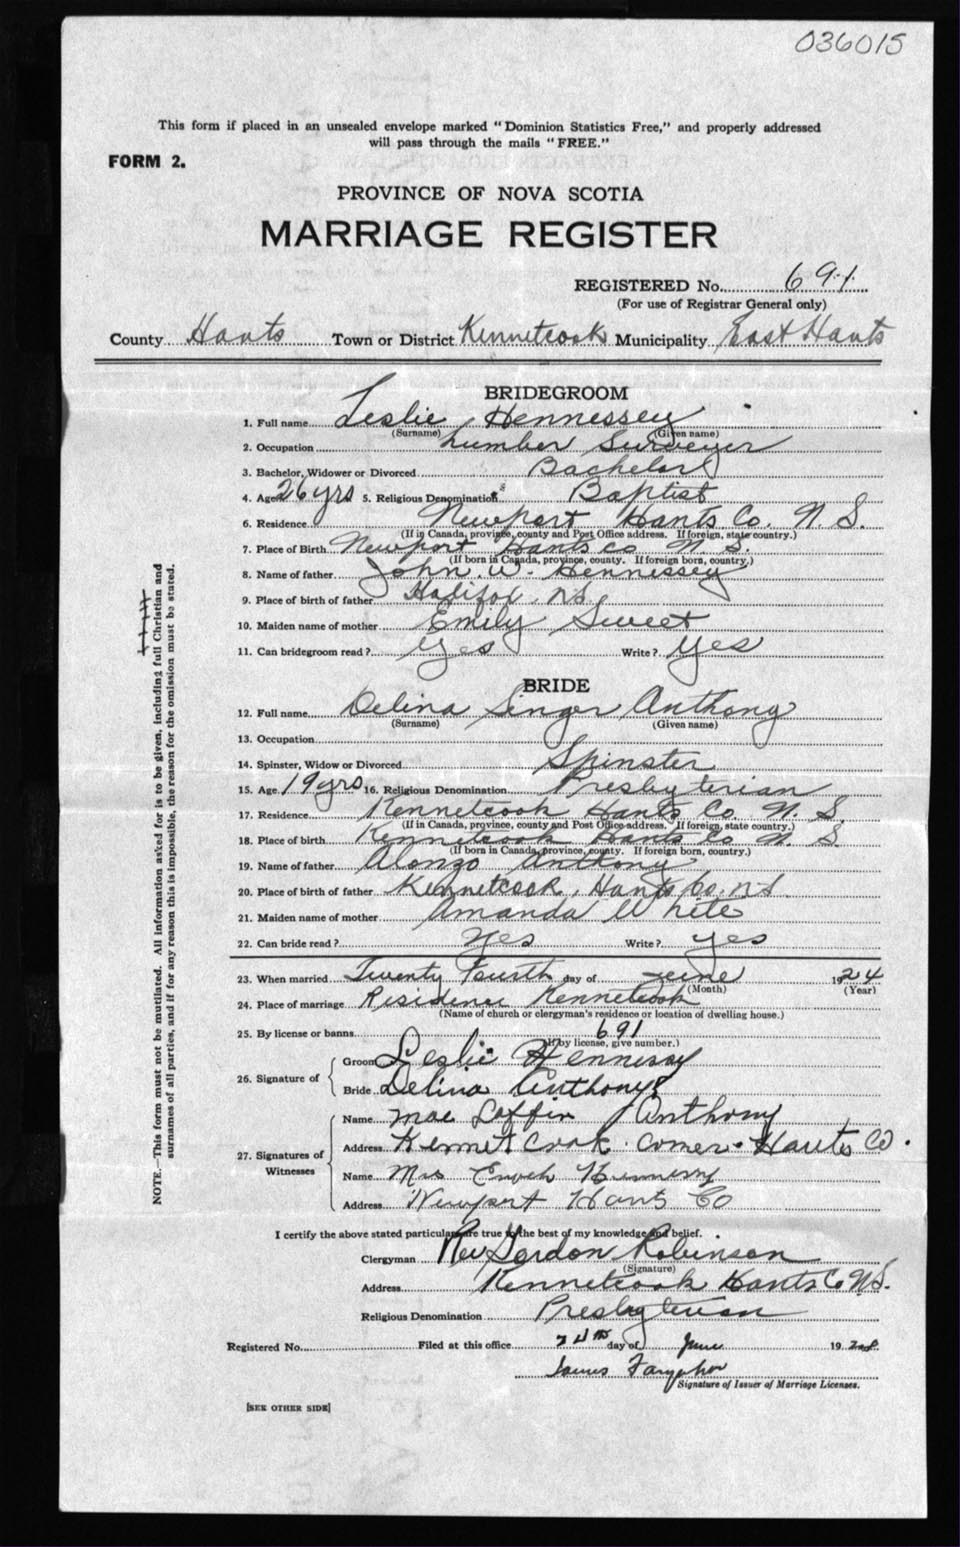 036015
This form if placed in an unsealed envelope marked "Dominion Statistics Free," and properly addressed
will pass through the mails "FREE."
FORM 2.
PROVINCE OF NOVA SCOTIA
MARRIAGE REGISTER
REGISTERED No. 691
(For use of Registrar General only)
County Hants Town or District Kennetcook Municipality East Hants
BRIDEGROOM
1. Full name Leslie Hennessey
(Surname) (Given name)
2. Occupation Lumber Surveyer
3. Bachelor, Widower or Divorced Bachelor
4. Age 26 yrs 5. Religious Denomination Baptist
6. Residence Newport Hants Co. N. S.
(If in Canada, province, county and Post Office address. If foreign, state country.)
7. Place of Birth Newport Hants Co N. S.
(If born in Canada, province, county. If foreign born, country.)
8. Name of father John W. Hennessey
9. Place of birth of father Halifax N.S.
10. Maiden name of mother Emily Sweet
11. Can bridegroom read? Yes Write? Yes
BRIDE
12. Full name Delina Singer Anthony
(Surname) (Given name)
13. Occupation
14. Spinster, Widow or Divorced Spinster
15. Age 19 yrs 16. Religious Denomination Presbyterian
17. Residence Kennetcook Hants Co N. S.
(If in Canada, province, county and Post Office address. If foreign, state country.)
18. Place of birth Kennetcook Hants Co N. S.
(If born in Canada, province, county. If foreign born, country.)
19. Name of father Alonzo Anthony
20. Place of birth of father Kennetcook, Hants Co. N S
21. Maiden name of mother Amanda White
22. Can bride read? Yes Write? Yes
23. When married Twenty Fourth day of June 1924
(Month) (Year)
24. Place of marriage Residence Kennetcook
(Name of church or clergyman's residence or location of dwelling house.)
25. By license or banns 691
(If by license, give number.)
26. Signature of Groom Leslie Hennessy
Bride Delina Anthony
27. Signatures of Witnesses Name Mae Anthony
Address Kennetcook Corner Hants Co.
Name Mrs Enoch Hennessy
Address Newport Hants Co
I certify the above stated particulars are true to the best of my knowledge and belief.
Clergyman Rev Gordon Robinson
(Signature)
Address Kennetcook Hants Co N.S.
Religious Denomination Presbyterian
Registered No. Filed at this office 24th day of June 192
James
Signature of Issuer of Marriage Licenses.
[SEE OTHER SIDE]
NOTE.—This form must not be mutilated. All information asked for is to be given, including full Christian and
surnames of all parties, and if for any reason this is impossible, the reason for the omission must be stated.